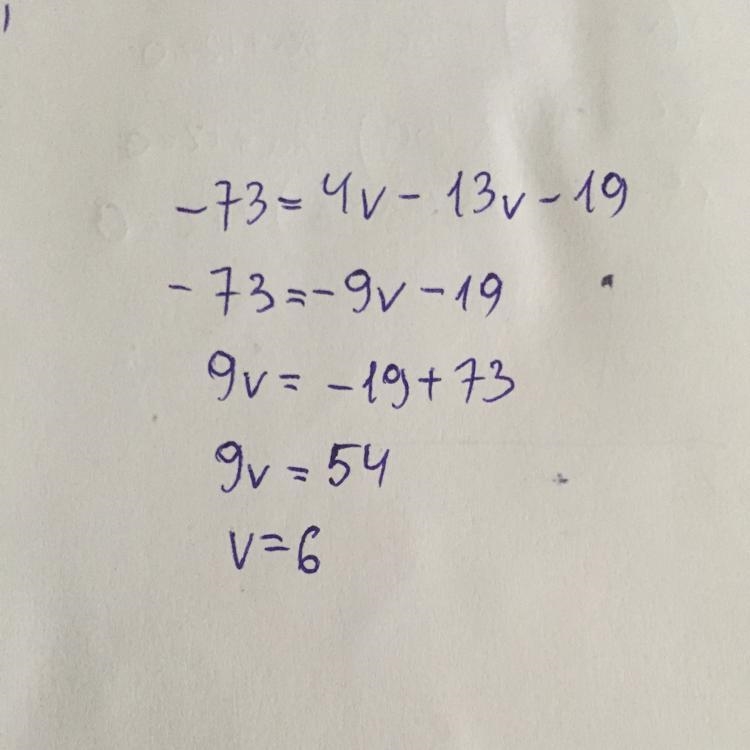 -73 = 4v - 13v - 19
-73 = -9v - 19
9v = -19 + 73
9v = 54
v = 6